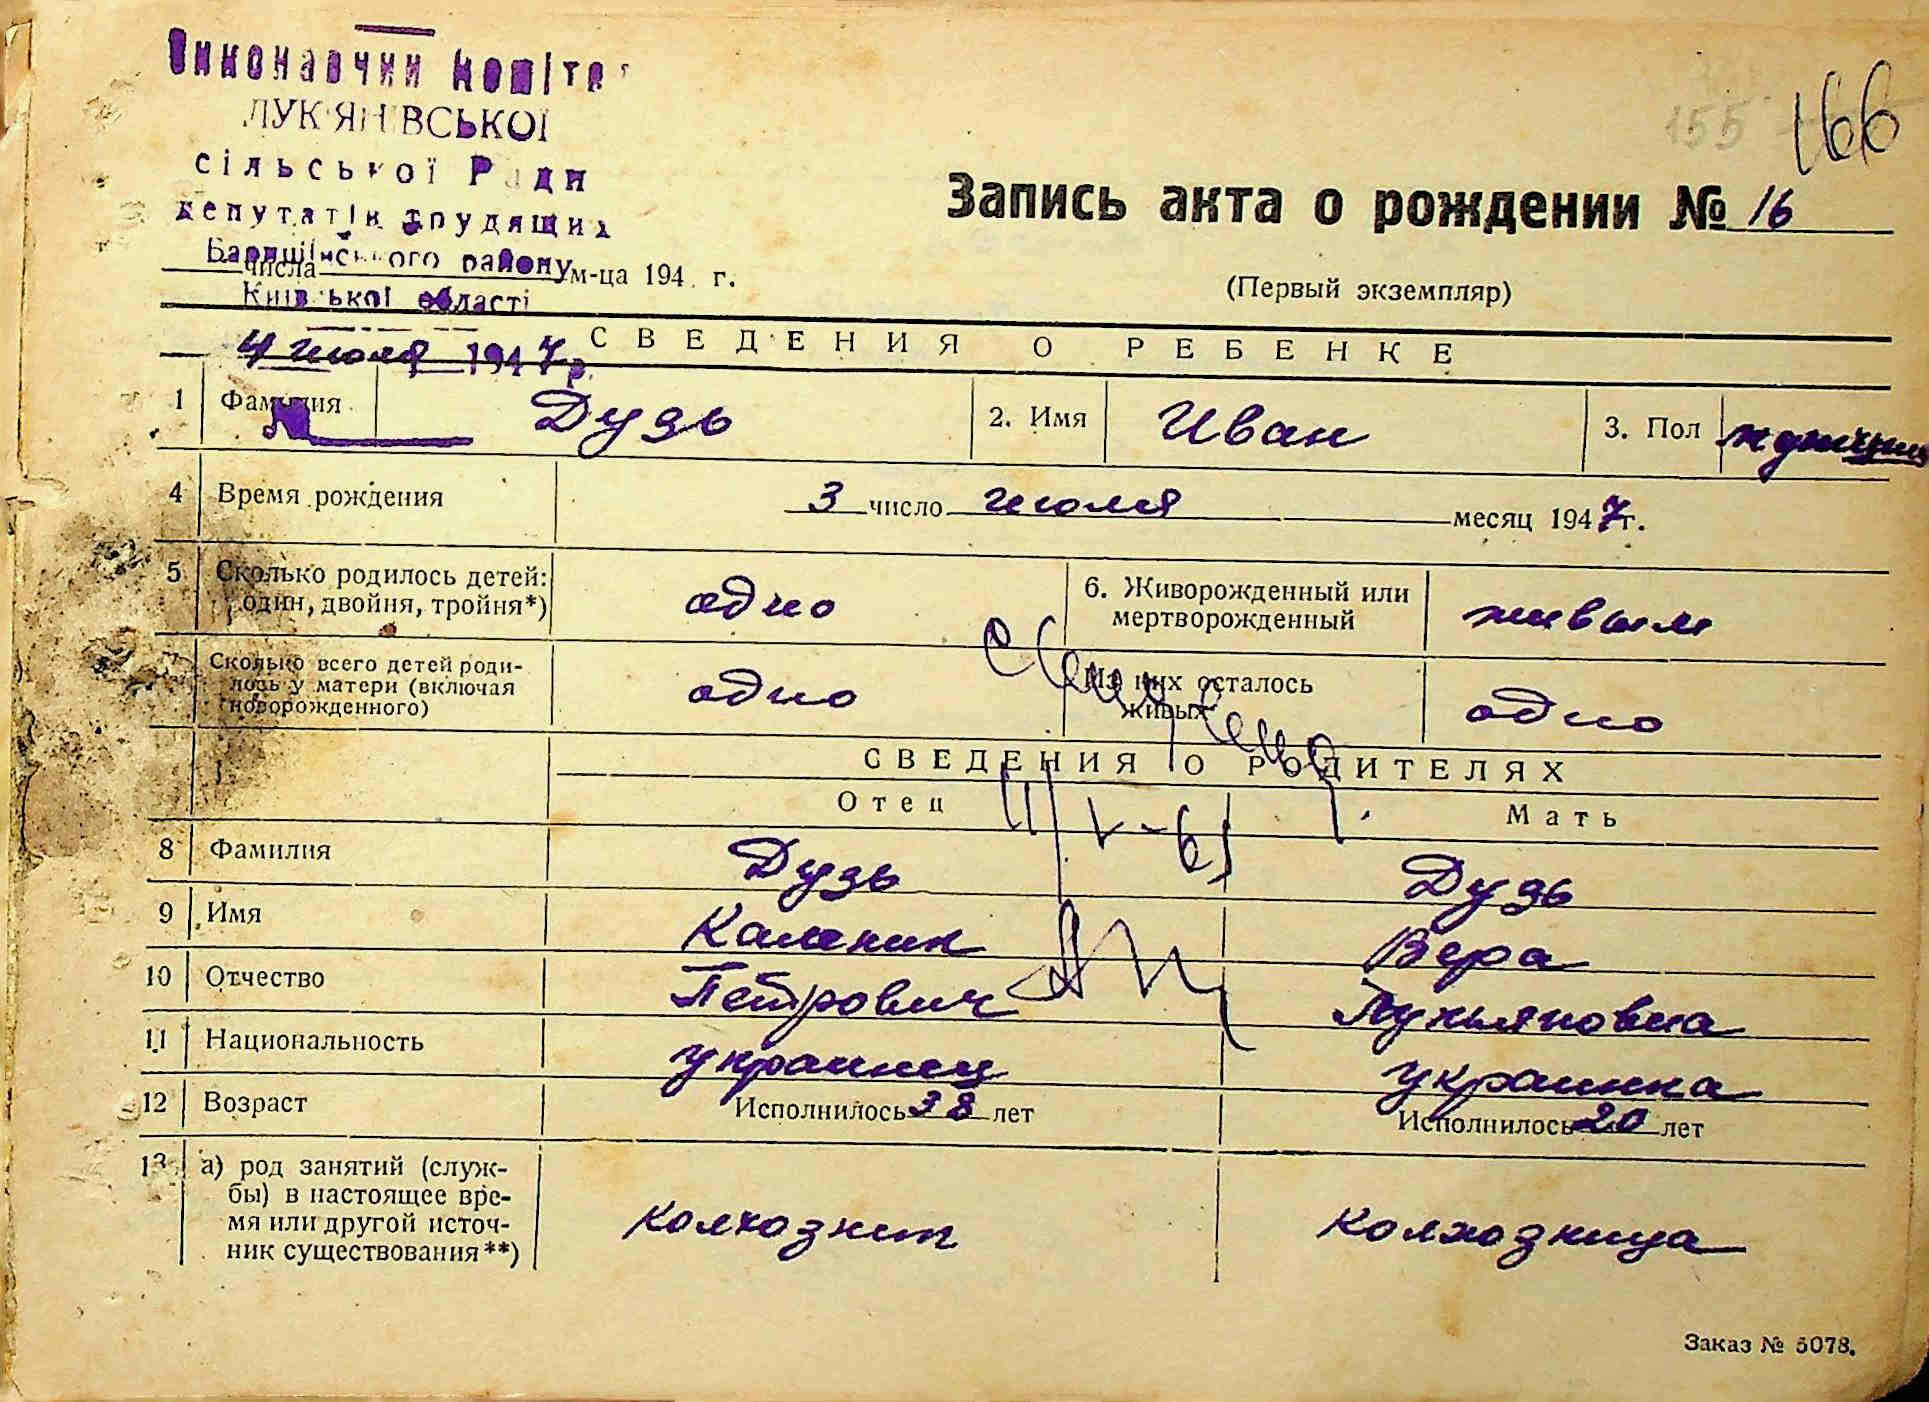 Виконавчий комітет
ЛУК'ЯНІВСЬКОЇ
сільської Ради
депутатів трудящих
Баришівського району
Київської області
4 июля 1947 р.
числа м-ца 194 г.
155
166
Запись акта о рождении № 16
(Первый экземпляр)
СВЕДЕНИЯ О РЕБЕНКЕ
1 Фамилия Дузь 2. Имя Иван 3. Пол
4 Время рождения 3 число июля месяц 1947 г.
5 Сколько родилось детей: один, двойня, тройня*) одно 6. Живорожденный или мертворожденный живым
7 Сколько всего детей родилось у матери (включая новорожденного) одно Из них осталось живых одно
СВЕДЕНИЯ О РОДИТЕЛЯХ
Отец Мать
8 Фамилия Дузь Дузь
9 Имя Каленик Вера
10 Отчество Петрович Лукьяновна
11 Национальность украинец украинка
12 Возраст Исполнилось 38 лет Исполнилось 20 лет
13 а) род занятий (службы) в настоящее время или другой источник существования**) колхозник колхозница
Заказ № 5078.